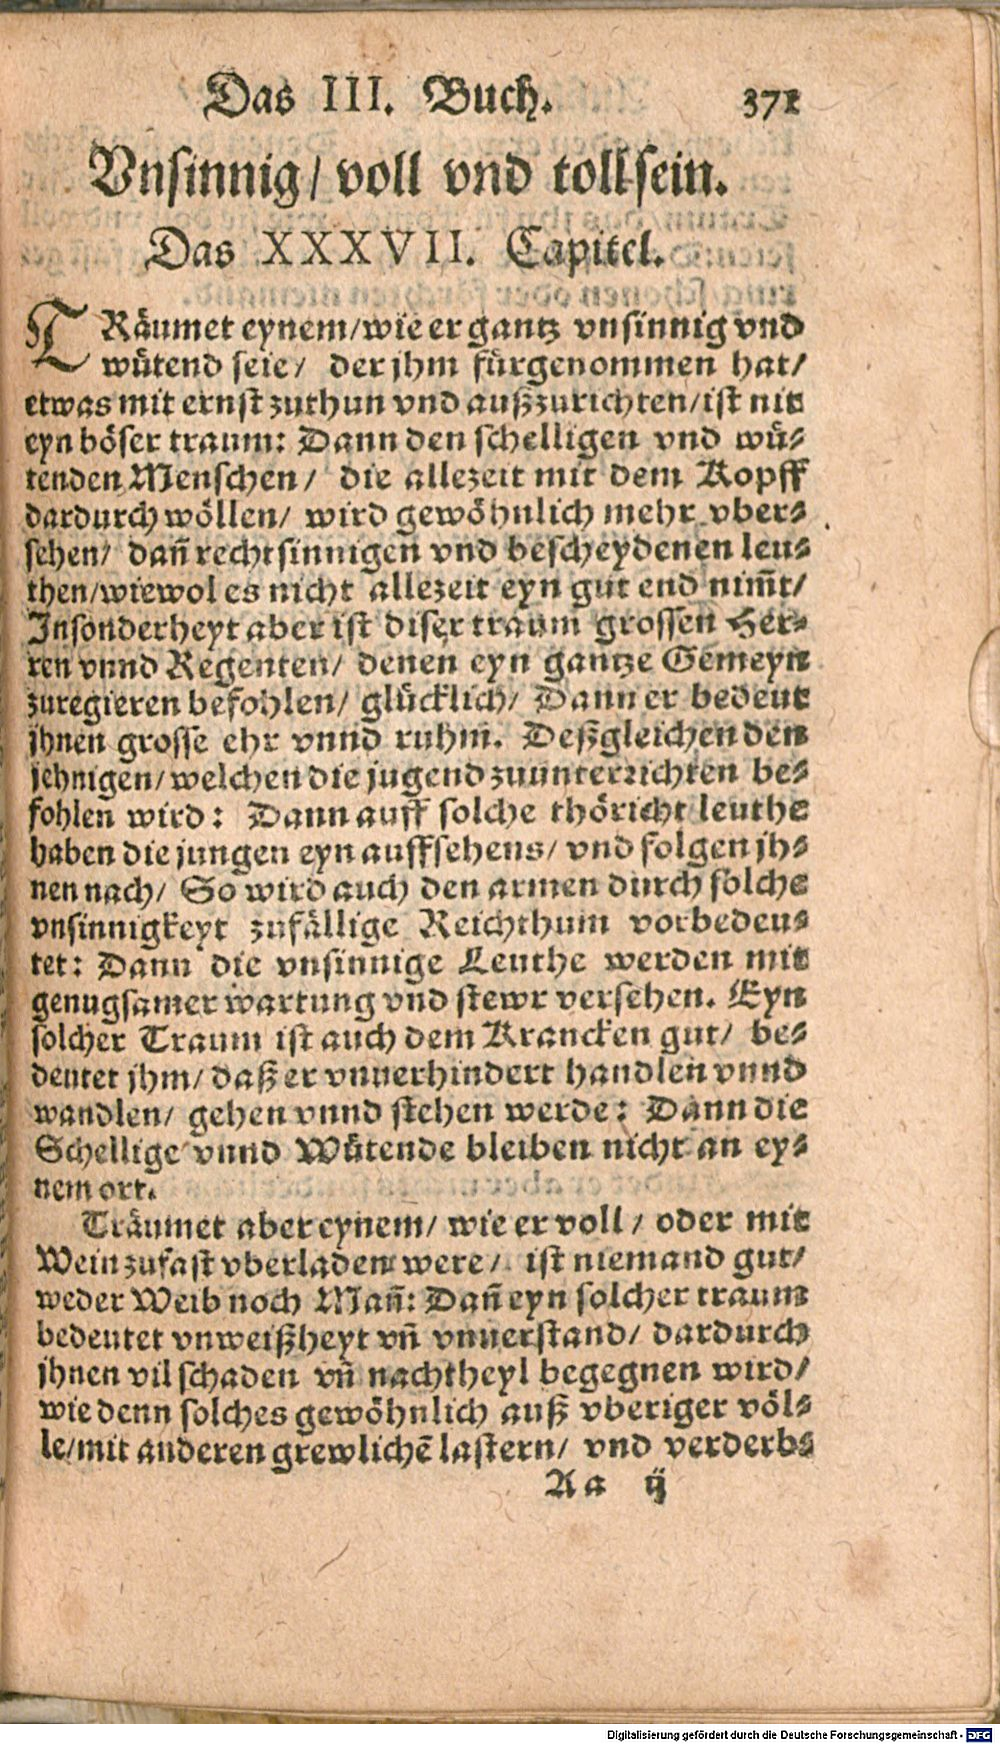 Das III. Buch. 371
Vnsinnig/ voll vnd toll sein.
Das XXXVII. Capitel.
TRäumet eynem/wie er gantz vnsinnig vnd
wütend seie/ der jhm fürgenommen hat/
etwas mit ernst zuthun vnd außzurichten/ist nit
eyn böser traum: Dann den schelligen vnd wü-
tenden Menschen/ die allezeit mit dem Kopff
dardurch wöllen/ wird gewöhnlich mehr vber-
sehen/ dañ rechtsinnigen vnd bescheydenen leu-
then/wiewol es nicht allezeit eyn gut end nim̃t/
Insonderheyt aber ist diser traum grossen Her-
ren vnnd Regenten/ denen eyn gantze Gemeyn
zuregieren befohlen/ glücklich/ Dann er bedeut
jhnen grosse ehr vnnd ruhm. Deßgleichen den
jehnigen/welchen die jugend zuunterrichten be-
fohlen wird: Dann auff solche thöricht leuthe
haben die jungen eyn auffsehens/ vnd folgen jh-
nen nach/ So wird auch den armen durch solche
vnsinnigkeyt zufällige Reichthum vorbedeu-
tet: Dann die vnsinnige Leuthe werden mit
genugsamer wartung vnd stewr versehen. Eyn
solcher Traum ist auch dem Krancken gut/ be-
deutet jhm/ daß er vnuerhindert handlen vnnd
wandlen/ gehen vnnd stehen werde: Dann die
Schellige vnnd Wütende bleiben nicht an ey-
nem ort.
Träumet aber eynem/ wie er voll/ oder mit
Wein zufast vberladen were/ ist niemand gut/
weder Weib noch Mañ: Dañ eyn solcher traum
bedeutet vnweißheyt vñ vnuerstand/ dardurch
jhnen vil schaden vñ nachtheyl begegnen wird/
wie denn solches gewöhnlich auß vberiger völ-
le/mit anderen grewlichẽ lastern/ vnd verderb-
Aa ij
Digitalisierung gefördert durch die Deutsche Forschungsgemeinschaft - DFG